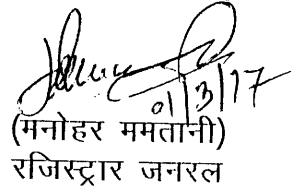 01/3/17
(मनोहर ममतानी)
रजिस्ट्रार जनरल